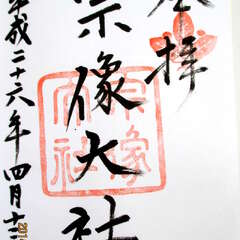 奉拝
宗像大社
平成二十六年四月十二
宗像大社